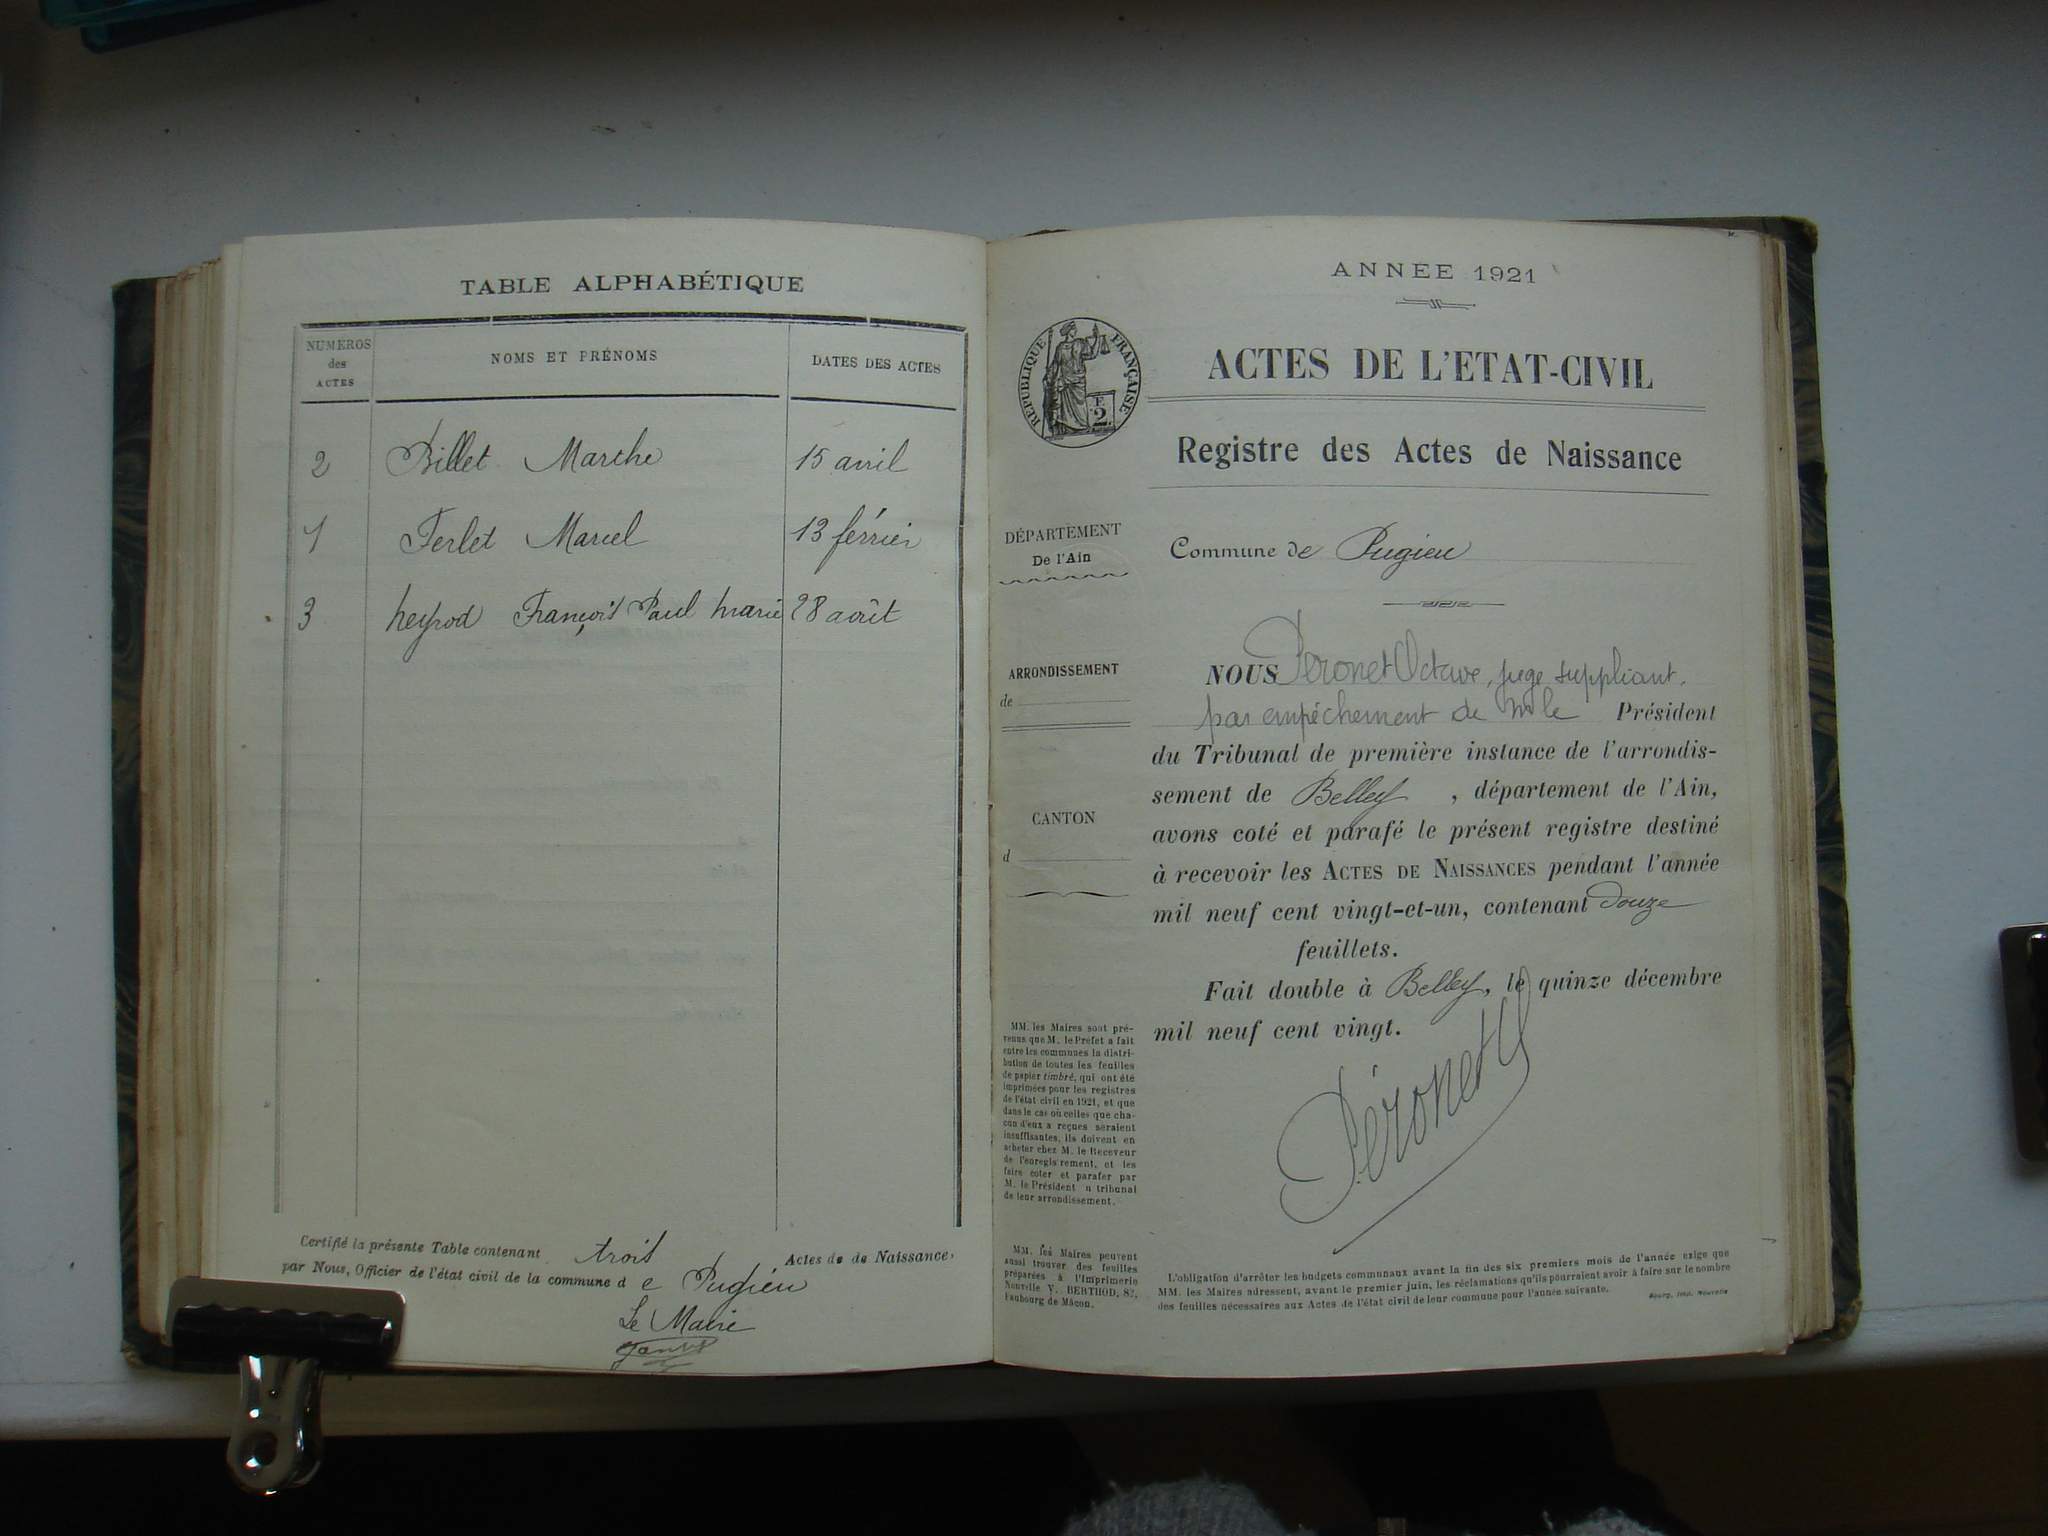 TABLE ALPHABÉTIQUE
NUMEROS
des
ACTES
NOMS ET PRÉNOMS
DATES DES ACTES
2 Billet Marthe 15 avril
1 Ferlet Marcel 13 février
3 heyrod François Paul Marie 28 août
Certifié la présente Table contenant trois Actes de de Naissance,
par Nous, Officier de l'état civil de la commune d e Pugieu
Le Maire
ANNÉE 1921
RÉPUBLIQUE FRANÇAISE
F.
2
ACTES DE L'ETAT-CIVIL
Registre des Actes de Naissance
DÉPARTEMENT
De l'Ain
Commune de Pugieu
ARRONDISSEMENT
de
CANTON
d
NOUS Péronet Octave, juge suppléant,
par empêchement de Mr le Président
du Tribunal de première instance de l'arrondis-
sement de Belley, département de l'Ain,
avons coté et parafé le présent registre destiné
à recevoir les ACTES DE NAISSANCES pendant l'année
mil neuf cent vingt-et-un, contenant douze
feuillets.
Fait double à Belley, le quinze décembre
mil neuf cent vingt.
Péronet
MM. les Maires sont pré-
venus que M. le Préfet a fait
entre les communes la distri-
bution de toutes les feuilles
de papier timbré, qui ont été
imprimées pour les registres
de l'état civil en 1921, et que
dans le cas où celles que cha-
cun d'eux a reçues seraient
insuffisantes, ils doivent en
acheter chez M. le Receveur
de l'enregis rement, et les
faire coter et parafer par
M. le Président u tribunal
de leur arrondissement.
MM. les Maires peuvent
aussi trouver des feuilles
préparées à l'Imprimerie
Nouvelle V. BERTHOD, 82,
Faubourg de Mâcon.
L'obligation d'arrêter les budgets communaux avant la fin des six premiers mois de l'année exige que
MM. les Maires adressent, avant le premier juin, les réclamations qu'ils pourraient avoir à faire sur le nombre
des feuilles nécessaires aux Actes de l'état civil de leur commune pour l'année suivante.
Bourg, Imp. Nouvelle